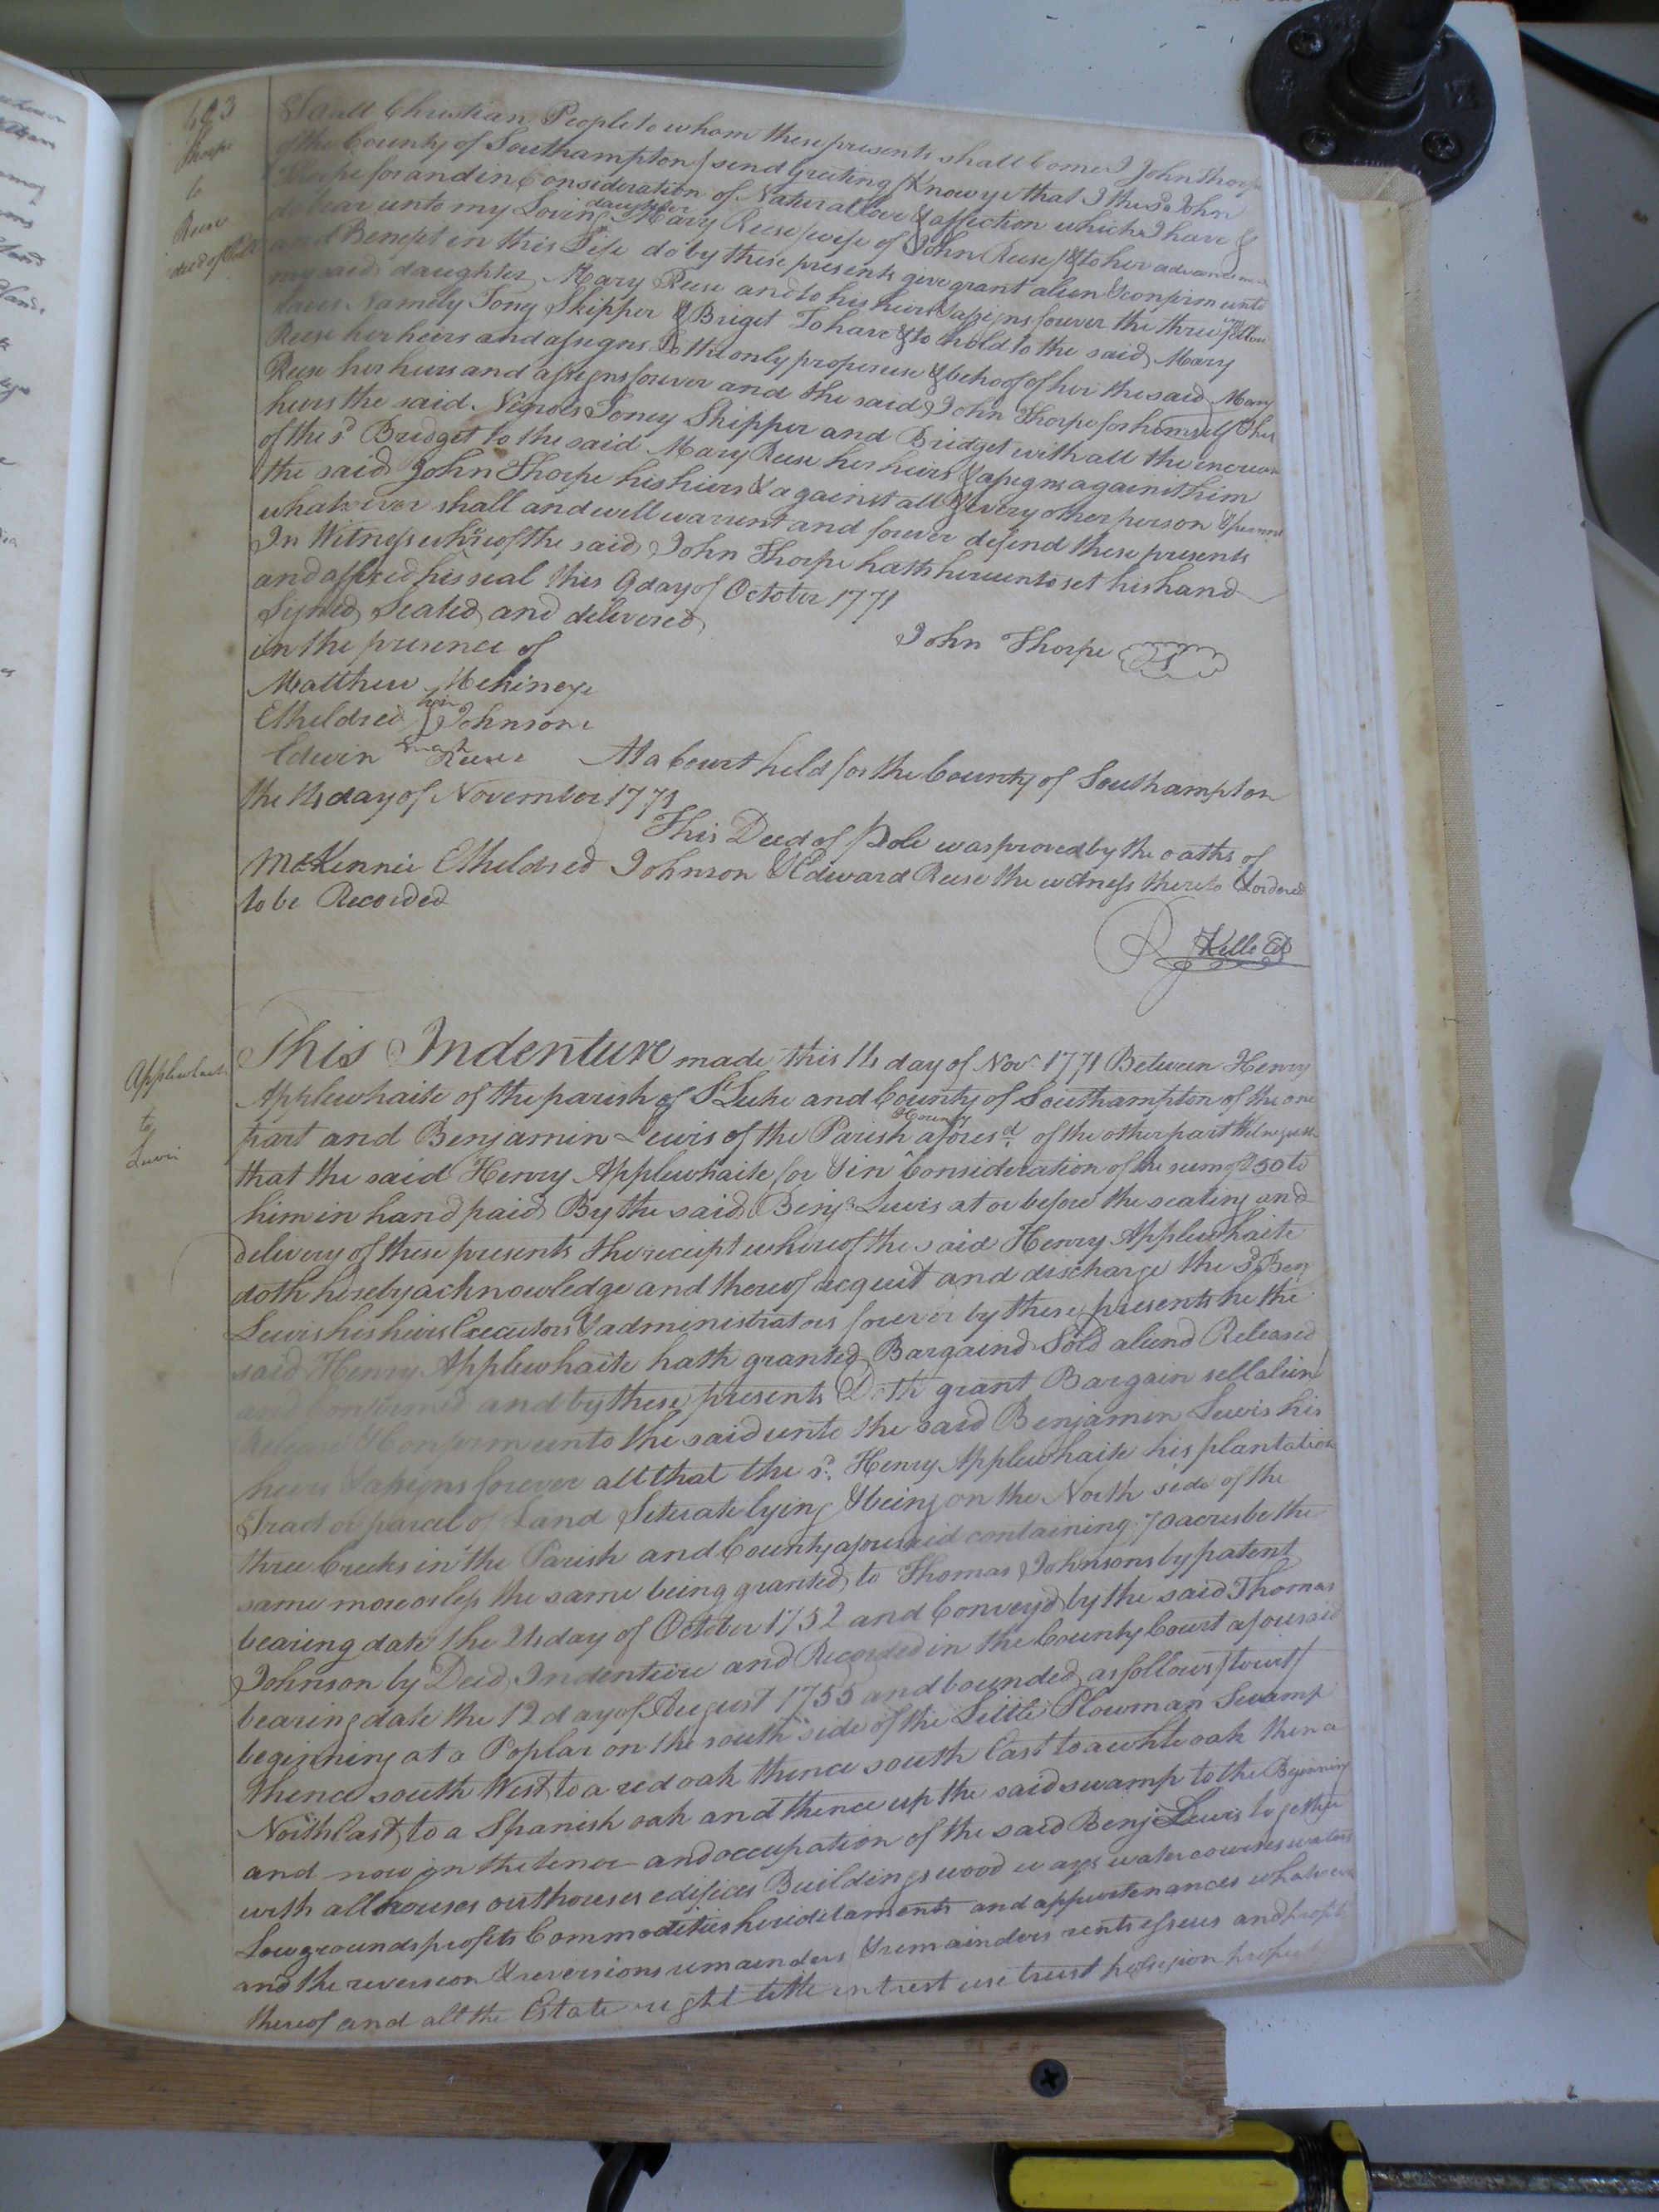 403
Thorpe
to
Reese
deed of Gift
To all Christian People to whom these presents shall Come I John Thorpe
of the County of Southampton / send Greeting / Know ye that I the sd. John
Thorpe for and in Consideration of Natural love & affection which I have &
do bear unto my Loving daughter Mary Reese / wife of John Reese / & to her advancement
and Benefit in this Life do by these presents give grant alien & confirm unto
my said daughter Mary Reese and to his heirs & assigns forever the three following
slaves Namely Tony Skipper & Briget To have & to hold to the said Mary
Reese her heirs and assigns To the only proper use & behoof of her the said Mary
Reese her heirs and assigns forever and the said John Thorpe for himself & his
heirs the said Negroes Toney Skipper and Bridget with all the increase
of the sd Bridget to the said Mary Reese her heirs & assigns against him
the said John Thorpe his heirs & against all & every other person & persons
whatsoever shall and will warrent and forever defend these presents
In Witness whereof the said John Thorpe hath hereunto set his hand
and affixed his seal this 9 day of October 1771
Signed Sealed and delivered
in the presence of
John Thorpe LS
Matthew Mckineye
Etheldred his Johnson
mark
Edwin Reese At a Court held for the County of Southampton
the 14 day of November 1771
This Deed of Pole was proved by the oaths of
McKennie Etheldred Johnson & Edward Reese the witness thereto & ordered
to be Recorded
R Kello Cl
Applewhaite
to
Lewis
This Indenture made this 14 day of Novr. 1771 Between Henry
Applewhaite of the parish of St Luke and County of Southampton of the one
part and Benjamin Lewis of the Parish & County aforesd. of the other part Witnesseth
that the said Henry Applewhaite for & in Consideration of the sum of £50 to
him in hand paid By the said Benja Lewis at or before the sealing and
delivery of these presents the reciept whereof the said Henry Applewhaite
doth hereby acknowledge and thereof acquit and discharge the sd Ben
Lewis his heirs Executors & administrators forever by these presents he the
said Henry Applewhaite hath granted Bargaind Sold aliend Released
and Confirmed and by these presents Doth grant Bargain sell alien
Release & Confirm unto the said unto the said Benjamin Lewis his
heirs & assigns forever all that the sd. Henry Applewhaite his plantation
Tract or parcel of Land Situate lying & being on the North side of the
three Creeks in the Parish and County aforesaid containing 70 acres be the
same more or less the same being granted to Thomas Johnsons by patent
bearing date the 24 day of October 1752 and Conveyd by the said Thomas
Johnson by Deed Indenture and Recorded in the County Court aforesaid
bearing date the 12 day of August 1755 and bounded as follows / to wit /
beginning at a Poplar on the south side of the Little Plowman Swamp
thence south West to a red oak thence south East to a white oak then a
North East to a Spanish oak and thence up the said swamp to the Beginning
and now in the tenor and occupation of the said Benj Lewis together
with all houses outhouses edifices Buildings wood ways water courses waters
Low grounds profits Commodities hereditaments and appurtenances whatsoever
and the reversion & reversions remainders & remainders rents issues and profits
thereof and all the Estate right title intrest use trust possession property